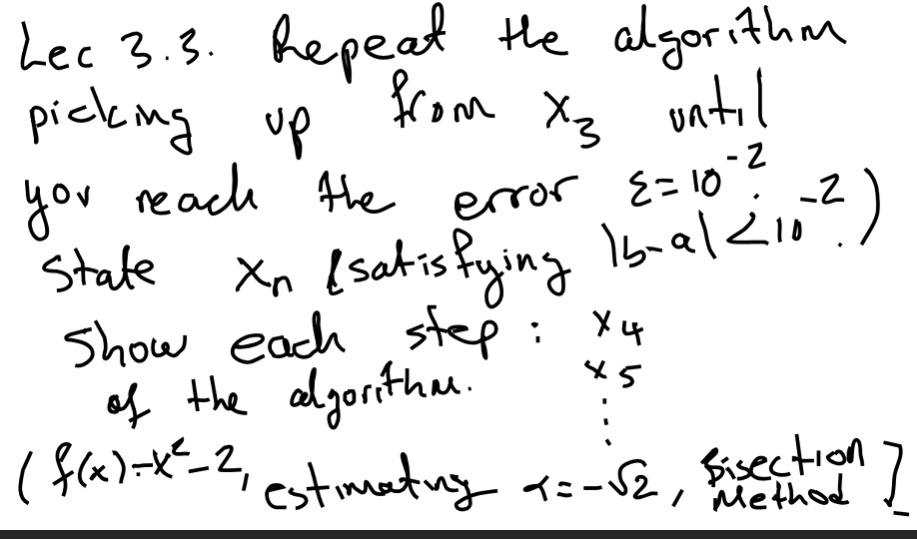 Lec 3.3. Repeat the algorithm
picking up from x₃ until
you reach the error ε = 10⁻².
State xₙ (satisfying |b-a| < 10⁻².)
Show each step : x₄
of the algorithm. x₅
⋮
(f(x) = x² - 2, estimating α = -√2, Bisection Method]